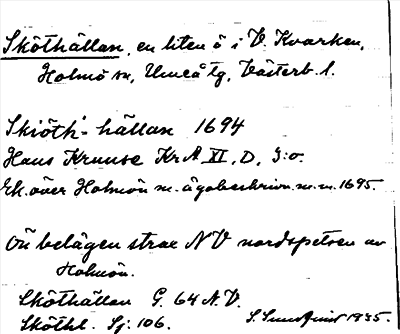 Sköthällan, en liten ö i V. Kvarken,
Holmö sn, Umeå tg, Västerb. l.
Skiöth-hällan 1694
Hans Kruuse Kr A XI, D, 3:o.
Ek. över Holmön m. ägobeskrivn. m. m. 1695.
Ön belägen strax NV nordspetsen av
Holmön.
Sköthällan G. 64 N.V.
Sköthl. Sj: 106.
1935.